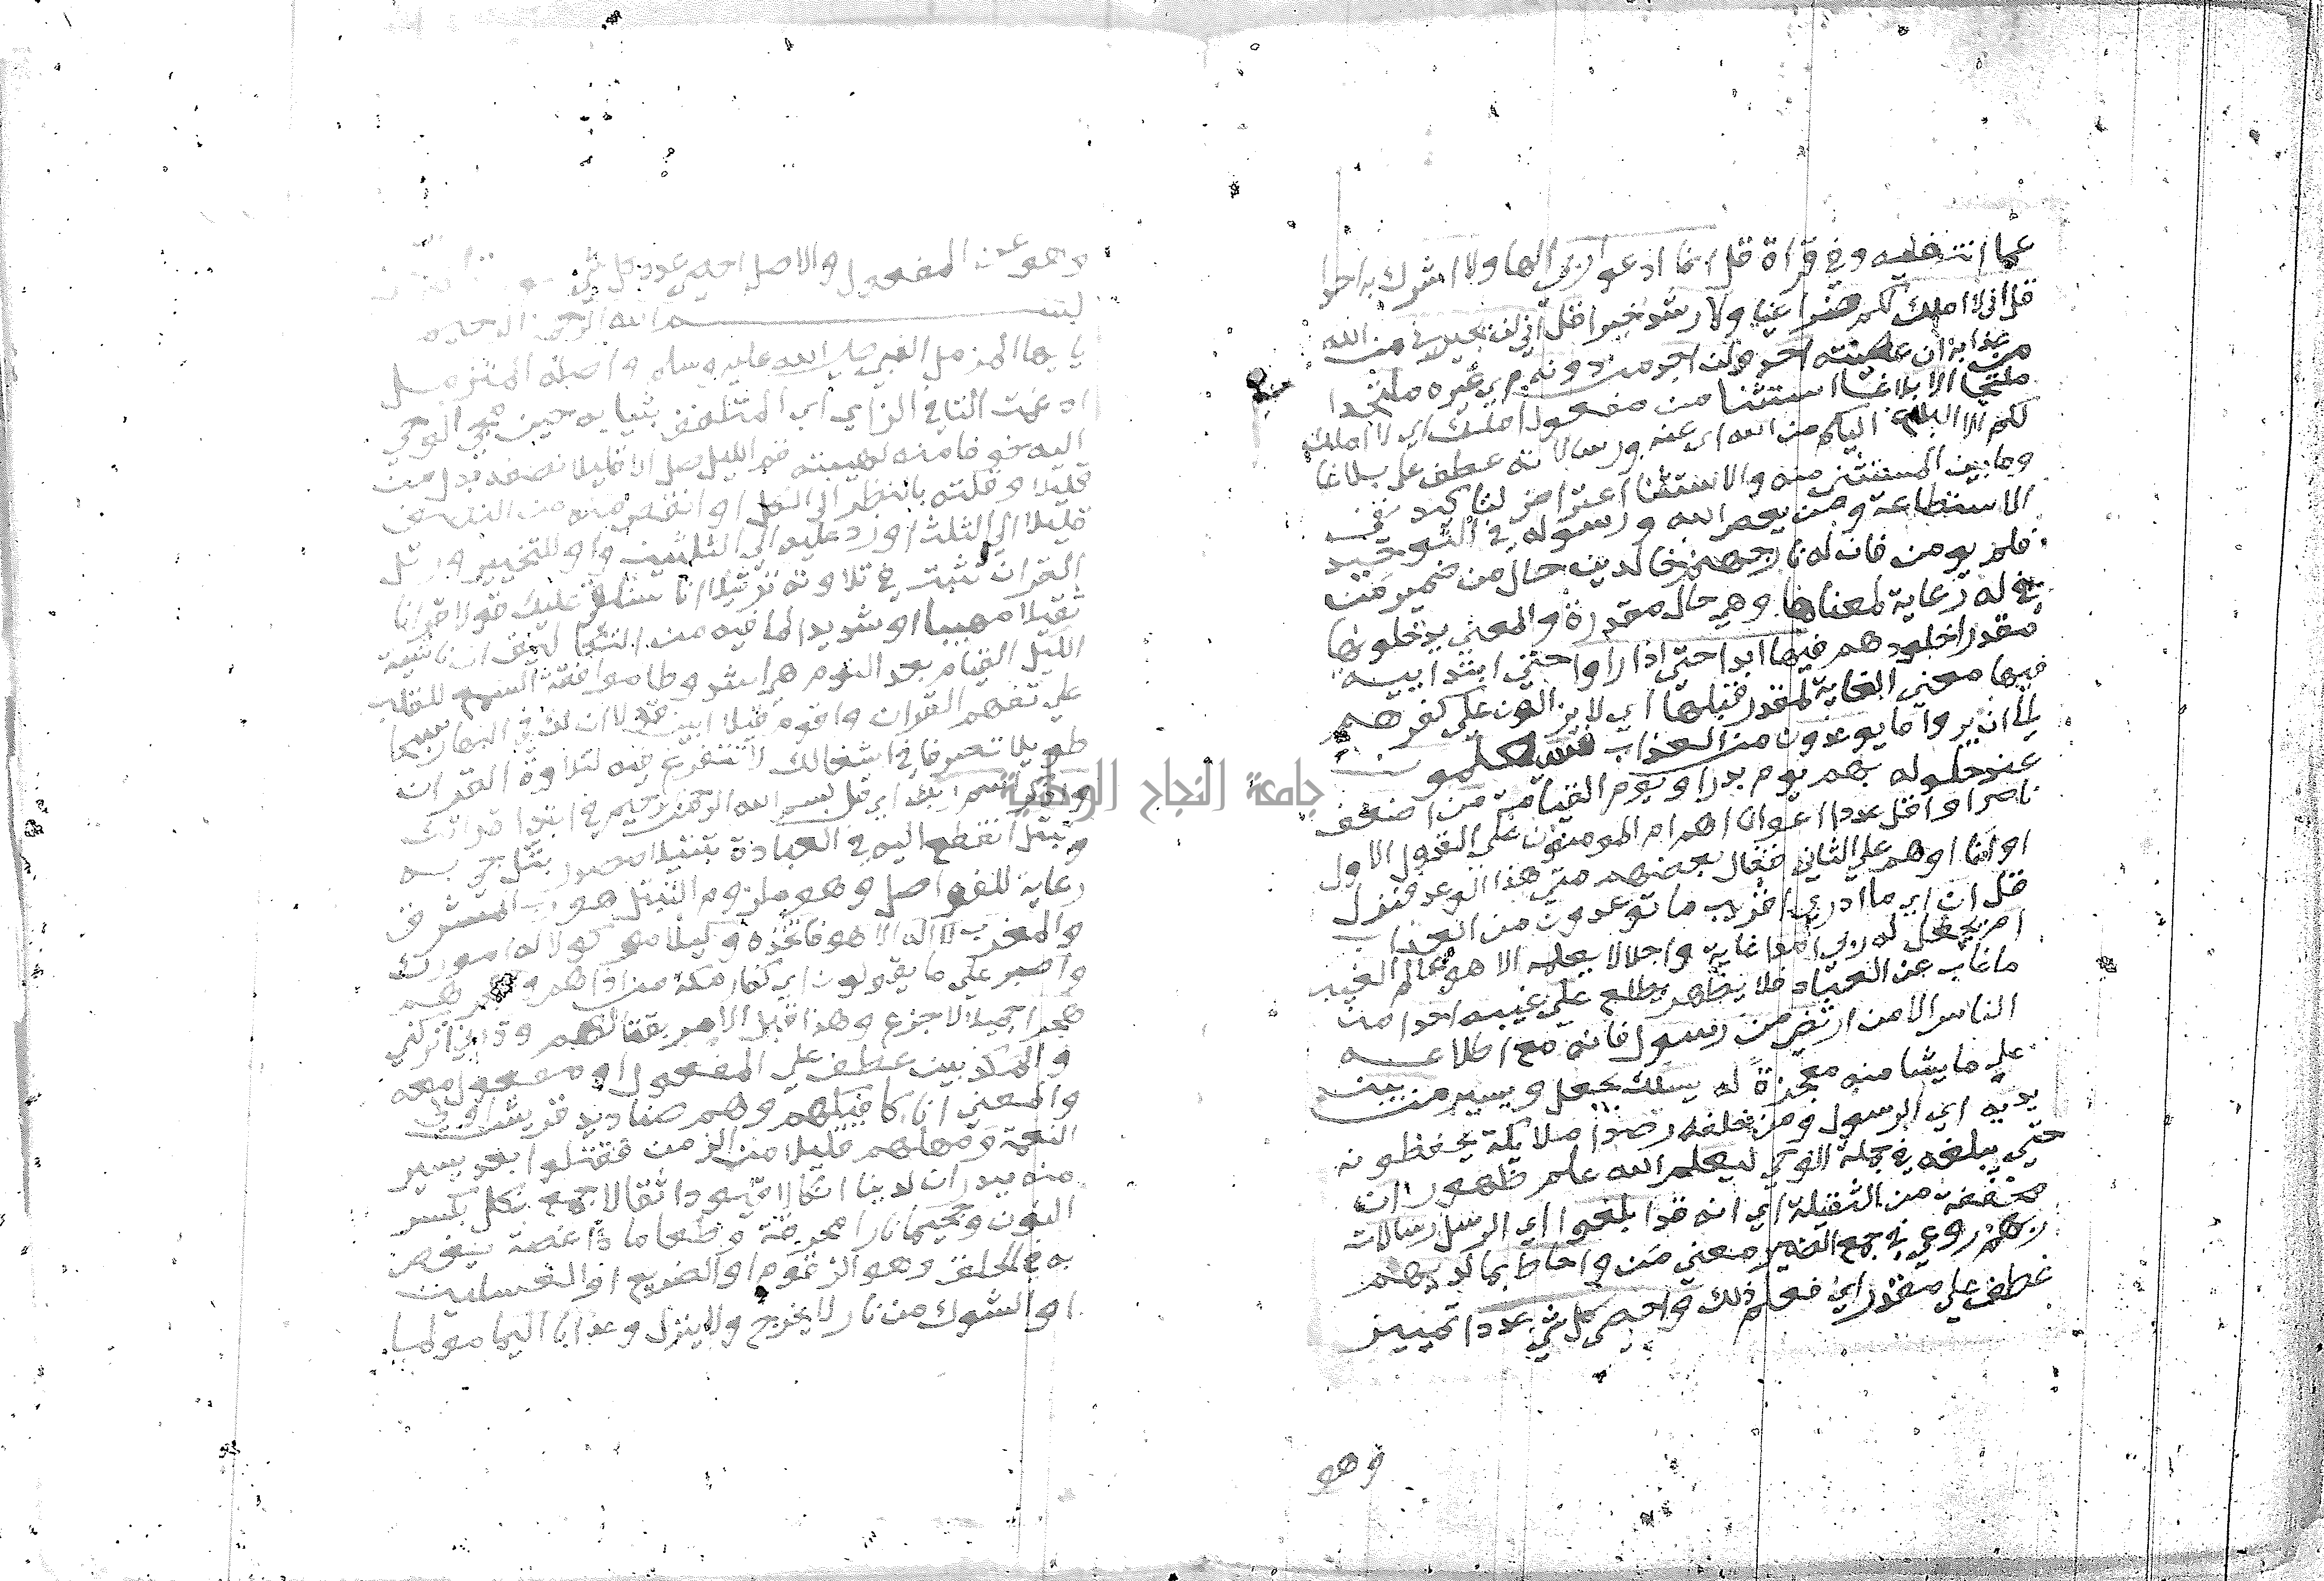 عما انت فيه وفي قراة قل انما ادعوا ربي الها ولا اشرك به احدا
قل اني لا املك لكم ضرا غيا ولا رشدا خيرا قل اني لن يجيرني من الله
من عذابه ان عصيته احد ولن اجد من دونه اي غيره ملتحدا
ملتجا الا بلاغا استثنا من مفعول املك اي لا املك
لكم الا البلاغ اليكم من الله اي عنه ورسالاته عطف علي بلاغا
وما بين المستثني منه والاستثنا اعتراض لتاكيد نفي
الاستطاعة ومن يعص الله ورسوله في التوحيد
فلم يومن فان له نار جهنم خالدين حال من ضمير من
في له رعاية لمعناها وهي حال مقدرة والمعني يدخلونها
مقدرا خلودهم فيها ابدا حتي اذا راوا حتي ابتدايية
فيها معني الغاية لمقدر قبلها اي لا يزالون علي كفرهم
الي ان يروا ما يوعدون من العذاب فسيعلمون
عند حلوله بهم يوم بدر او يوم القيامة من اضعف
ناصرا واقل عددا اعوانا اهم ام المومنون علي القول الاول
او انا او هم علي الثاني فقال بعضهم متي هذا الوعد فنزل
قل ان اي ما ادري اقريب ما توعدون من العذاب
ام يجعل له ربي امدا غاية واجلا لا يعلمه الا هو عالم الغيب
ما غاب عن العباد فلا يظهر يطلع علي غيبه احدا من
الناس الا من ارتضي من رسول فانه مع اطلاعه
علي ما يشا منه معجزة له يسلك يجعل ويسير من بين
يديه اي الرسول ومن خلفه رصدا ملايكة يحفظونه
حتي يبلغه في جملة الوحي ليعلم الله علم ظهور ان
مخففة من الثقيلة اي انه قد ابلغوا اي الرسل رسالات
ربهم روعي في جمع الضمير معني من واحاط بما لديهم
عطف علي مقدر اي فعلم ذلك واحصي كل شي عددا تمييز
وهو
وهو عن المفعول والاصل احصي عدد كل شي
بسم الله الرحمن الرحيم
يايها المزمل النبي صلي الله عليه وسلم واصله المتزمل
ادغمت التا في الزاي اي المتلفف بثيابه حين مجي الوحي
اليه خوفا منه لهيبته قم الليل صل الا قليلا نصفه بدل من
قليلا وقلته بالنظر الي الكل او انقص منه من النصف
قليلا الي الثلث او زد عليه الي الثلثين واو للتخيير ورتل
القران تثبت في تلاوته ترتيلا انا سنلقي عليك قولا قرانا
ثقيلا مهيبا او شديدا لما فيه من التكاليف ان ناشية
الليل القيام بعد النوم هي اشد وطا موافقة السمع للقلب
علي تفهم القران واقوم قيلا ابين قولا ان لك في النهار سبحا
طويلا تصرفا في اشغالك لا تتفرغ فيه لتلاوة القران
واذكر اسم ربك اي قل بسم الله الرحمن الرحيم في ابتدا قراتك
وتبتل انقطع اليه في العبادة تبتيلا مصدر بتل جي به
رعاية للفواصل وهو ملزوم التبتل هو رب المشرق
والمغرب لا اله الا هو فاتخذه وكيلا موكولا له امورك
واصبر علي ما يقولون اي كفار مكة من اذاهم واهجرهم
هجرا جميلا لا جزع وهذا قبل الامر بقتالهم وذرني اتركني
والمكذبين عطف علي المفعول او مفعول معه
والمعني انا كافيكهم وهم صناديد قريش اولي
النعمة ومهلهم قليلا من الزمن فقتلوا بعد يسير
منه ببدر ان لدينا انكالا قيودا ثقالا جمع نكل بكسر
النون وجحيما نارا محرقة وطعاما ذا غصة يغص
به في الحلق وهو الزقوم او الضريع او الغسلين
او الشوك من نار لا يخرج ولا ينزل وعذابا اليما مولما
جامعة النجاح الوطنية